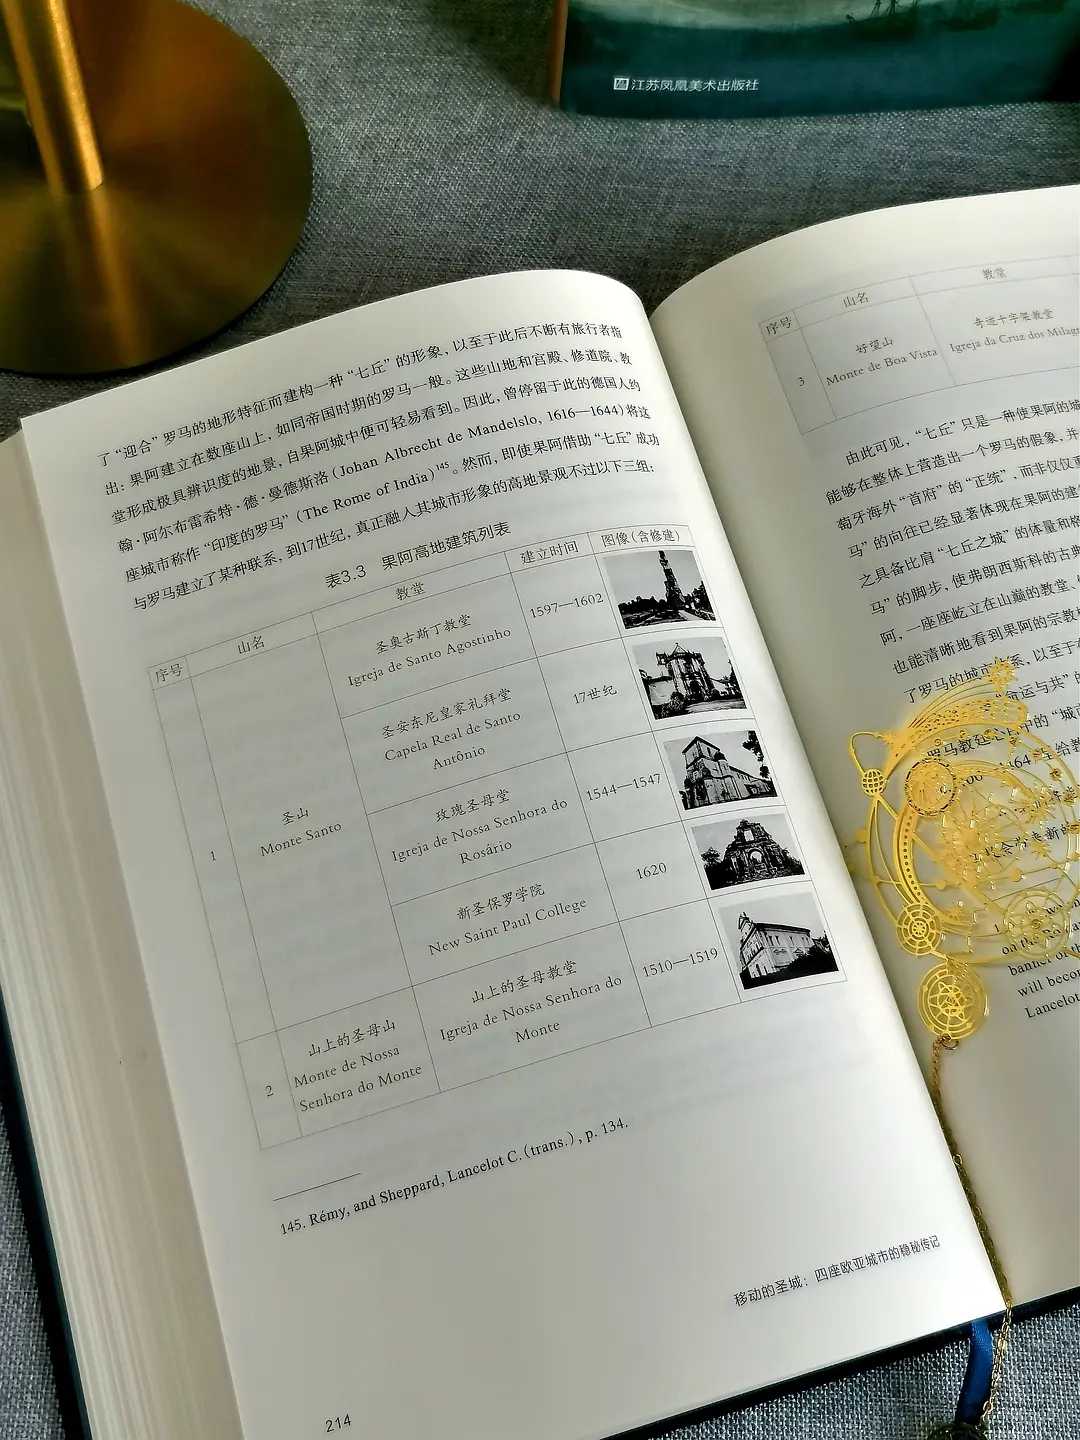 江苏凤凰美术出版社
了“迎合”罗马的地形特征而建构一种“七丘”的形象，以至于此后不断有旅行者指
出：果阿建立在数座山上，如同帝国时期的罗马一般。这些山地和宫殿、修道院、教
堂形成极具辨识度的地景，自果阿城中便可轻易看到。因此，曾停留于此的德国人约
翰·阿尔布雷希特·德·曼德斯洛（Johan Albrecht de Mandelslo, 1616—1644）将这
座城市称作“印度的罗马”（The Rome of India）¹⁴⁵。然而，即使果阿借助“七丘”成功
与罗马建立了某种联系，到17世纪，真正融入其城市形象的高地景观不过以下三组：
表3.3 果阿高地建筑列表
序号 山名 教堂 建立时间 图像（含修建）
1
圣山
Monte Santo
圣奥古斯丁教堂
Igreja de Santo Agostinho
1597—1602
圣安东尼皇家礼拜堂
Capela Real de Santo
Antônio
17世纪
玫瑰圣母堂
Igreja de Nossa Senhora do
Rosário
1544—1547
新圣保罗学院
New Saint Paul College
1620
2
山上的圣母山
Monte de Nossa
Senhora do Monte
山上的圣母教堂
Igreja de Nossa Senhora do
Monte
1510—1519
145. Rémy, and Sheppard, Lancelot C.（trans.）, p. 134.
移动的圣城：四座欧亚城市的稳秘传记
214
序号 山名 教堂
3
好望山
Monte de Boa Vista
奇迹十字架教堂
Igreja da Cruz dos Milagr
由此可见，“七丘”只是一种使果阿的城
能够在整体上营造出一个罗马的假象，并
萄牙海外“首府”的“正统”，而非仅仅重
马”的向往已经显著体现在果阿的建
之具备比肩“七丘之城”的体量和格
马”的脚步，使弗朗西斯科的古典
阿，一座座屹立在山巅的教堂、
也能清晰地看到果阿的宗教
了罗马的城市 系，以至于
命运与共”的
罗马教廷心目中的“城市
464 给教
on the Ro
banner of th
will becom
Lancelot